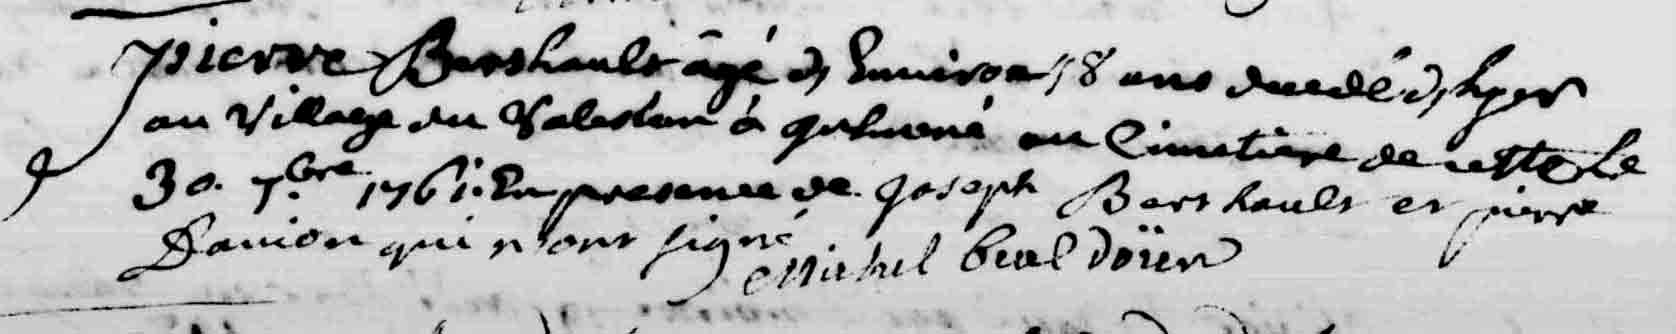 pierre Barthault âgé d Environ 18 ans decedé d hyer
au Village du Valeslan a Inhumé au Cimetiere de cette Le
30. 7.bre 1761. En presence de Joseph Barthault et pierre
Danion qui n'ont signé
Michel